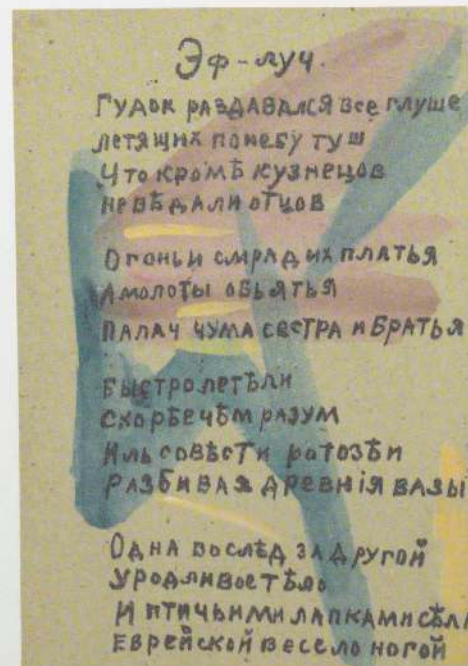 Эф-луч.
ГУДОК РАЗДАВАЛСЯ ВСЕ ГЛУШЕ
ЛЕТЯЩИХ ПОНЕБУ ТУШ
ЧТО КРОМѢ КУЗНЕЦОВ
НЕВѢДАЛИ ОТЦОВ
ОГОНЬ И СМРАД ИХ ПЛАТЬЯ
А МОЛОТЫ ОБЬЯТЬЯ
ПАЛАЧ ЧУМА СЕСТРА И БРАТЬЯ
БЫСТРО ЛЕТѢЛИ
СКОРѢЕ ЧѢМ РАЗУМ
ИЛЬ СОВѢСТИ РОТОЗѢИ
РАЗБИВАЯ ДРЕВНІЯ ВАЗЫ
ОДНА ВОСЛѢД ЗА ДРУГОЙ
УРОДЛИВОЕ ТѢЛО
И ПТИЧЬИМИ ЛАПКАМИ СѢЛА
ЕВРЕЙСКОЙ ВЕСЕЛО НОГОЙ